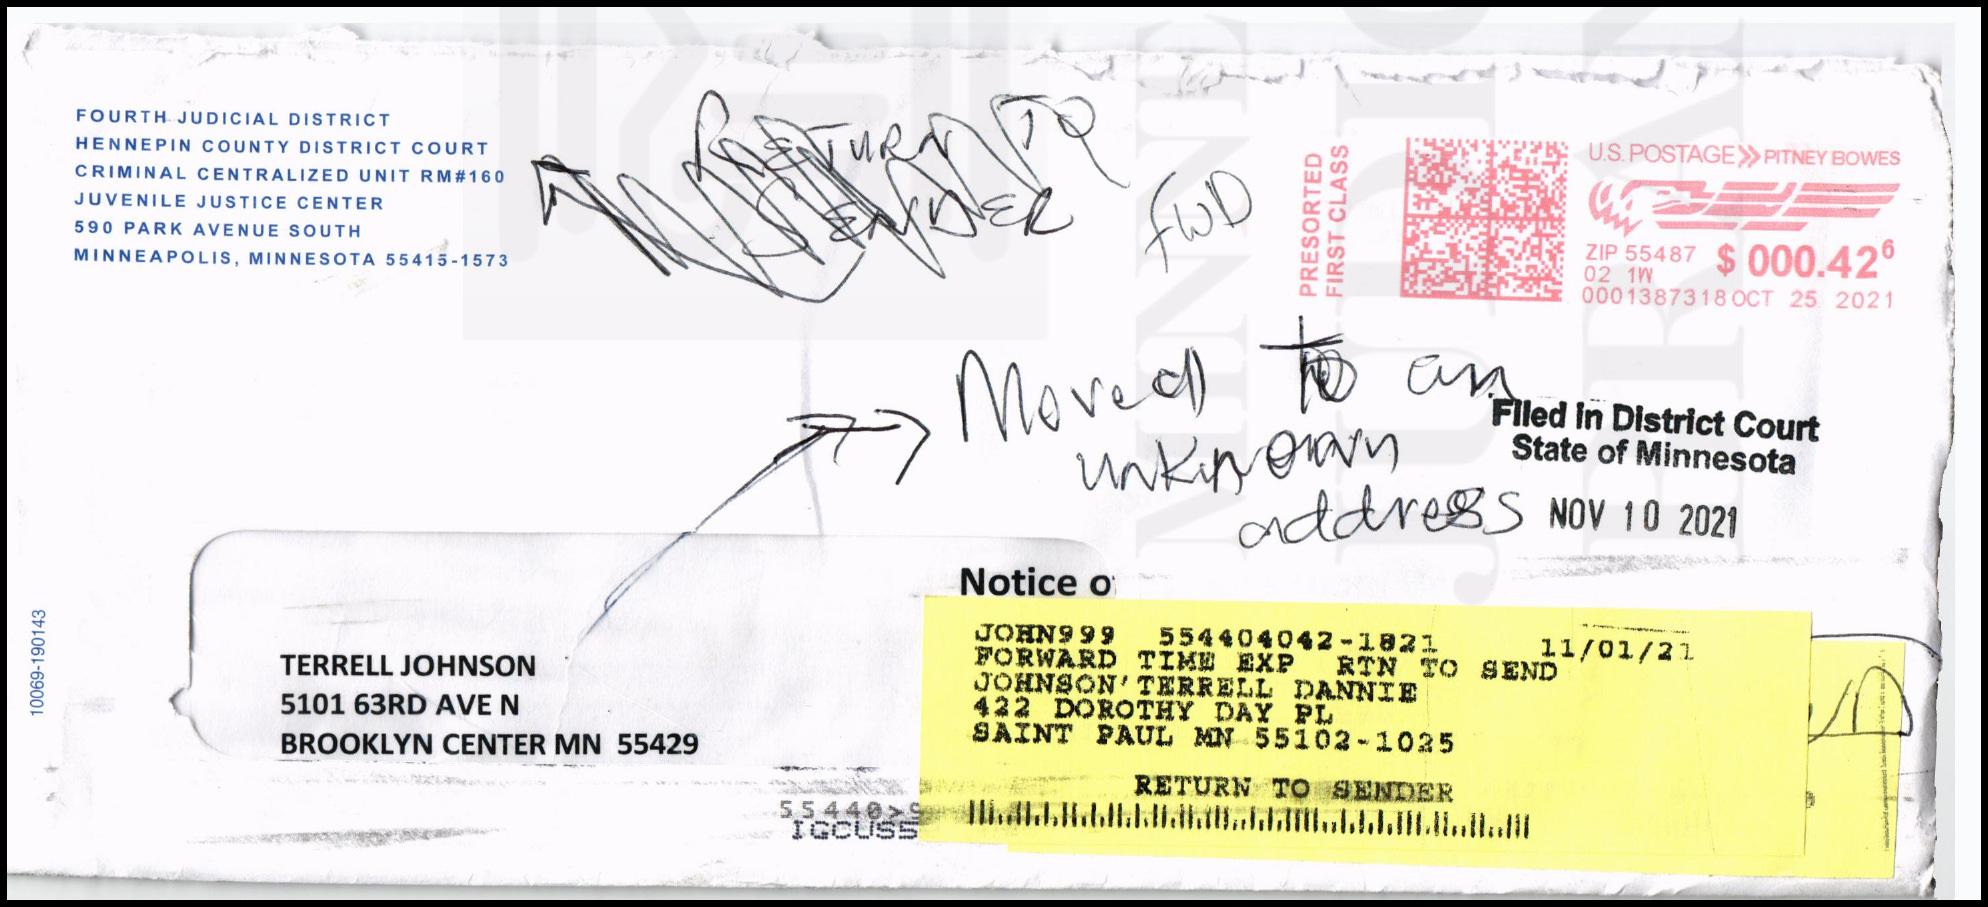 FOURTH JUDICIAL DISTRICT
HENNEPIN COUNTY DISTRICT COURT
CRIMINAL CENTRALIZED UNIT RM#160
JUVENILE JUSTICE CENTER
590 PARK AVENUE SOUTH
MINNEAPOLIS, MINNESOTA 55415-1573
RETURN TO
SENDER
FWD
PRESORTED
FIRST CLASS
U.S. POSTAGE PITNEY BOWES
ZIP 55487 $ 000.42⁶
02 1W
0001387318 OCT 25 2021
Moved to an
unknown
address
Filed in District Court
State of Minnesota
NOV 10 2021
Notice o
10069-190143
TERRELL JOHNSON
5101 63RD AVE N
BROOKLYN CENTER MN 55429
JOHN999 554404042-1821 11/01/21
FORWARD TIME EXP RTN TO SEND
JOHNSON'TERRELL DANNIE
422 DOROTHY DAY PL
SAINT PAUL MN 55102-1025
RETURN TO SENDER
55440>9
IGCUSS